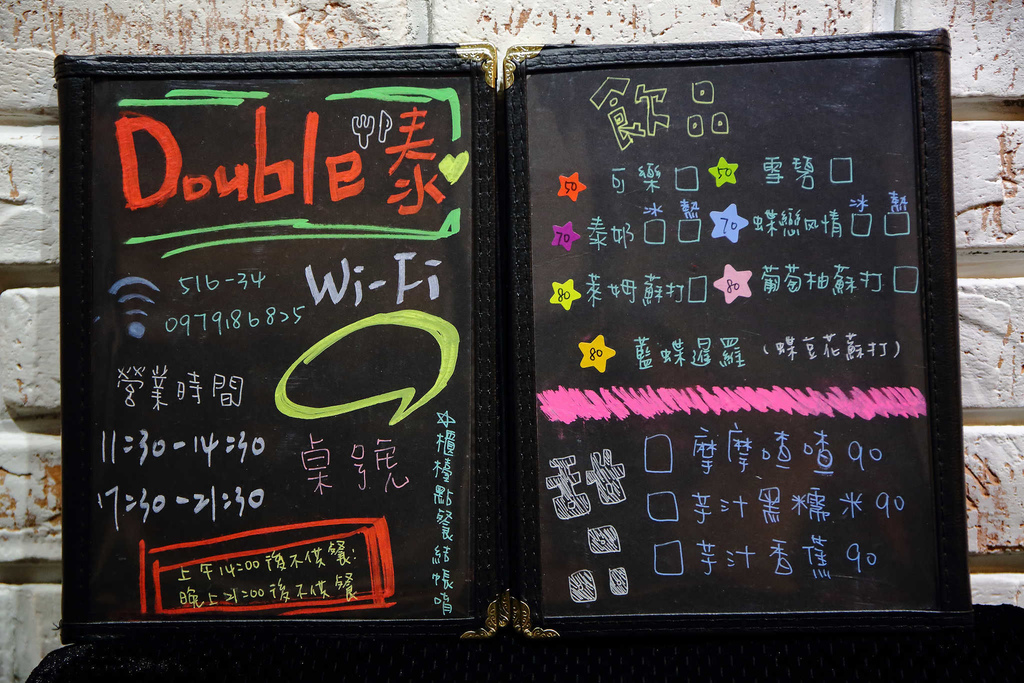 Double 泰
Wi-Fi
516-34
0979186825
營業時間
11:30-14:30
17:30-21:30
桌號
上午14:00後不供餐:
晚上21:00後不供餐
櫃檯點餐結帳唷
飲品
50 可樂 50 雪碧
70 泰奶 冰 熱 70 蝶戀风情 冰 熱
80 萊姆蘇打 80 葡萄柚蘇打
80 藍蝶暹羅 (蝶豆花蘇打)
甜品
摩摩喳喳 90
芋汁黑糯米 90
芋汁香蕉 90